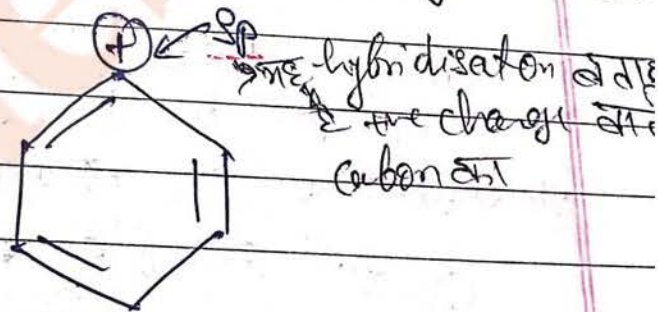 + sp
यह hybridisation बताइए
है +ve charge वाले
carbon का